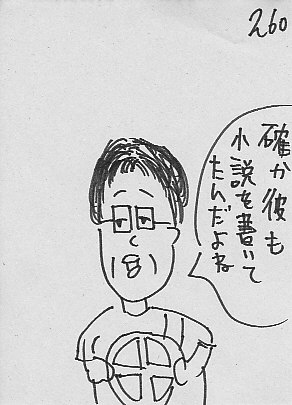 260
確か彼も
小説を書いて
たんだよね